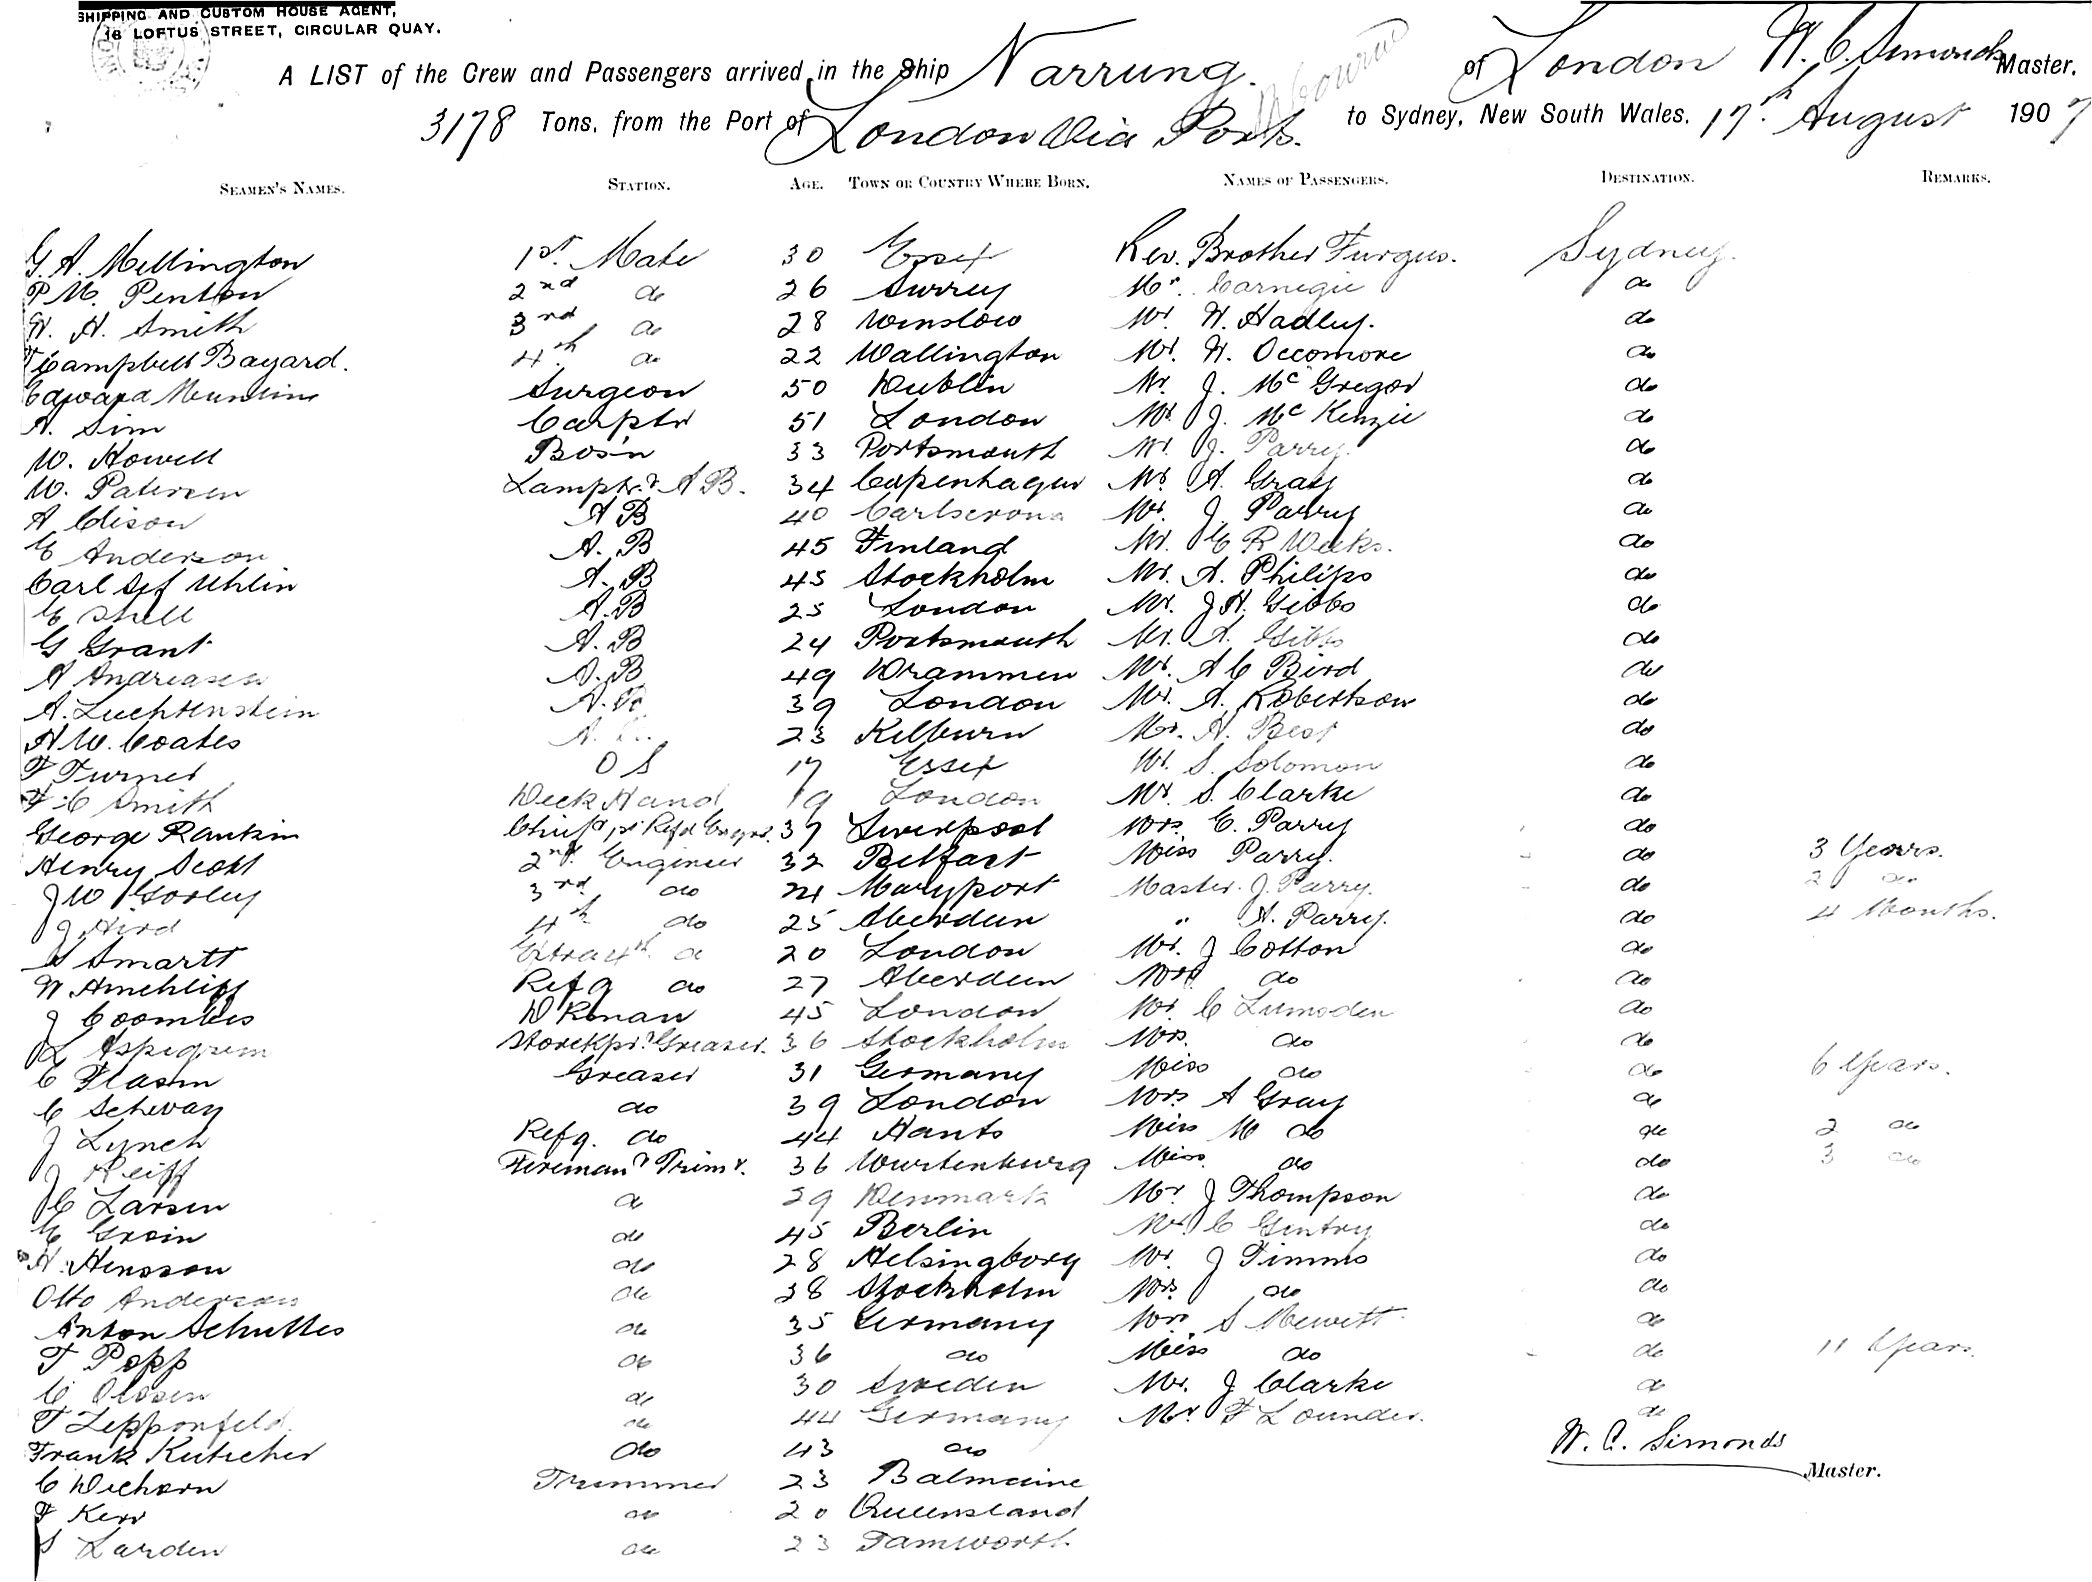 SHIPPING AND CUSTOM HOUSE AGENT,
16 LOFTUS STREET, CIRCULAR QUAY.
A LIST of the Crew and Passengers arrived in the Ship Narrung. of London W. C. Simonds Master.
3178 Tons, from the Port of London Via Ports. to Sydney, New South Wales, 17th August 1907
SEAMEN'S NAMES. STATION. AGE. TOWN OR COUNTRY WHERE BORN. NAMES OF PASSENGERS. DESTINATION. REMARKS.
G. A. Mellington 1st. Mate 30 Essex Rev. Brother Furgus. Sydney.
P M. Penton 2nd do 26 Surrey Mr. Carnegie do
W. H. Smith 3rd do 28 Winslow Mr. W. Hadley. do
Campbell Bayard. 4th do 22 Wallington Mr. W. Occomore do
Edward Surgeon 50 Dublin Mr. J. McGregor do
A. Sim Carptr 51 London Mr. J. McKenzie do
W. Howell Bos'n 33 Portsmouth Mr. J. Parry. do
W. Petersen Lamptr. & A B. 34 Copenhagen Mr A. Gray do
A Edison A B 40 Carlscrona Mr. J. Parry do
E Anderson A. B 45 Finland Mr. E R Weeks. do
Carl Uhlin A. B 45 Stockholm Mr. A. Philips do
E Shell A. B 25 London Mr. J H. Gibbs do
G Grant A. B 24 Portsmouth Mr. A. Gibbs do
A Andreasen A. B 49 Drammen Mr. A C Bird do
A. Luchtenstein A. B 39 London Mr. A. Robertson do
H W. Coates A. 23 Kilburn Mr. H. Best do
F Turner O S 17 Essex Mr. S. Solomon do
F. C Smith Deck Hand 19 London Mr S. Clarke do
George Rankin Chief & Refg Engnr. 37 Liverpool Mrs. E. Parry do
Henry Scott 2nd. Engineer 32 Belfast Miss Parry. do 3 Years.
J W Gorley 3rd do 21 Maryport Master. J. Parry. do 2 do
J Hird 4th do 25 Aberdeen " A. Parry. do 4 Months.
S Smartt Extra 4th. do 20 London Mr. J Cotton do
W Hinchliff Refg do 27 Aberdeen Mrs do do
J Coombes D Kman 45 London Mr. C Lumsden do
L Aspegren Storekpr. & Greaser. 36 Stockholm Mrs. do do
C Flasm Greaser 31 Germany Miss do do 6 Years.
C Schwarz do 39 London Mrs A Gray do
J Lynch Refg. do 44 Hants Miss M do do 2 do
J Reiff Fireman & Trimr. 36 Wurtenburg Miss do do 3 do
C Larsen do 29 Denmark Mr J Thompson do
E Groin do 45 Berlin Mr C Gentry do
H. Hensson do 28 Helsingborg Mr. J Timms do
Otto Anderson do 38 Stockholm Mrs. do do
Anton Schultes do 35 Germany Mrs S Hewitt do
T Popp do 36 do Miss do do 11 Years.
C Olssen do 30 Sweden Mr. J Clarke do
T Zepponfeld. do 44 Germany Mr F Lounder. do
Frank Kutscher do 43 do W. C. Simonds
C Dichorn Trimmer 23 Balmaine Master.
F Kerr do 20 Queensland
S Larden do 23 Tamworth